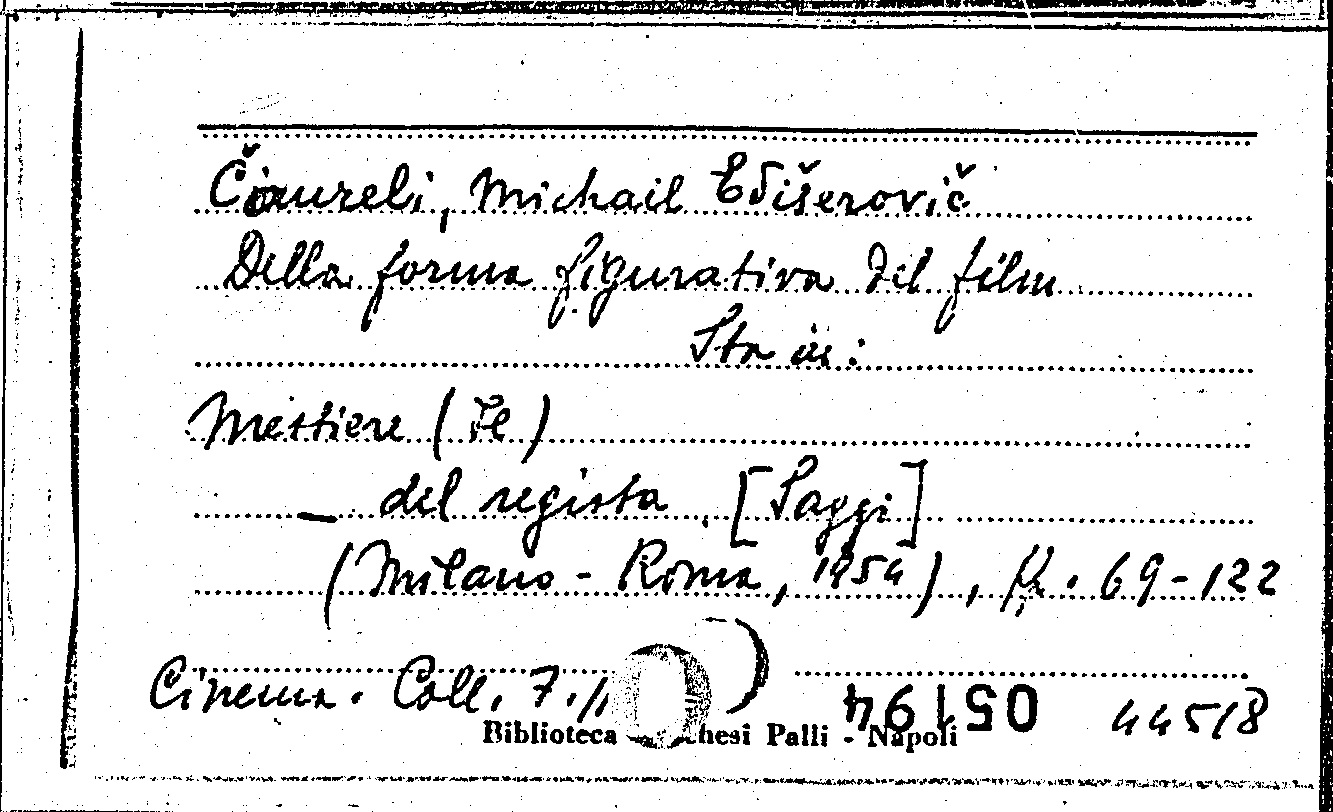 Čiaureli, Michail Edišerovič
Della forma figurativa del film
Sta in:
Mestiere (Il)
— del regista. [Saggi]
(Milano - Roma, 1954), pp. 69-122
Cinema. Coll. 7.
Biblioteca chesi Palli - Napoli
05194
44518